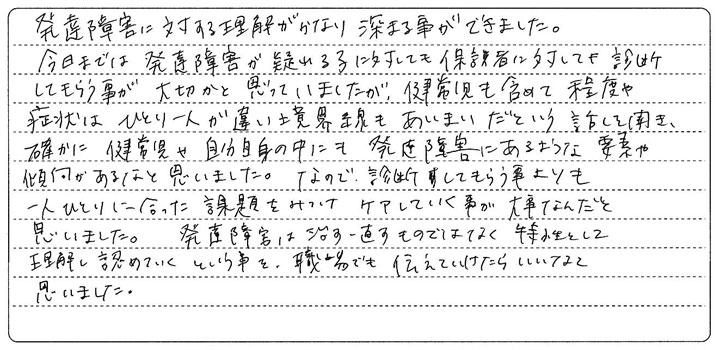 発達障害に対する理解がかなり深まる事ができました。
今日までは発達障害が疑れる子に対しても保護者に対しても診断
してもらう事が大切かと思っていましたが、健常児も含めて程度や
症状はひとり一人が違い境界線もあいまいだという話しを聞き、
確かに健常児や自分自身の中にも発達障害にあるような要素や
傾向があるなと思いました。なので、診断をしてもらう事よりも
一人ひとりに合った課題をみつけケアしていく事が大事なんだと
思いました。発達障害は治す・直すものではなく特性として
理解し認めていくという事を、職場でも伝えていけたらいいなと
思いました。